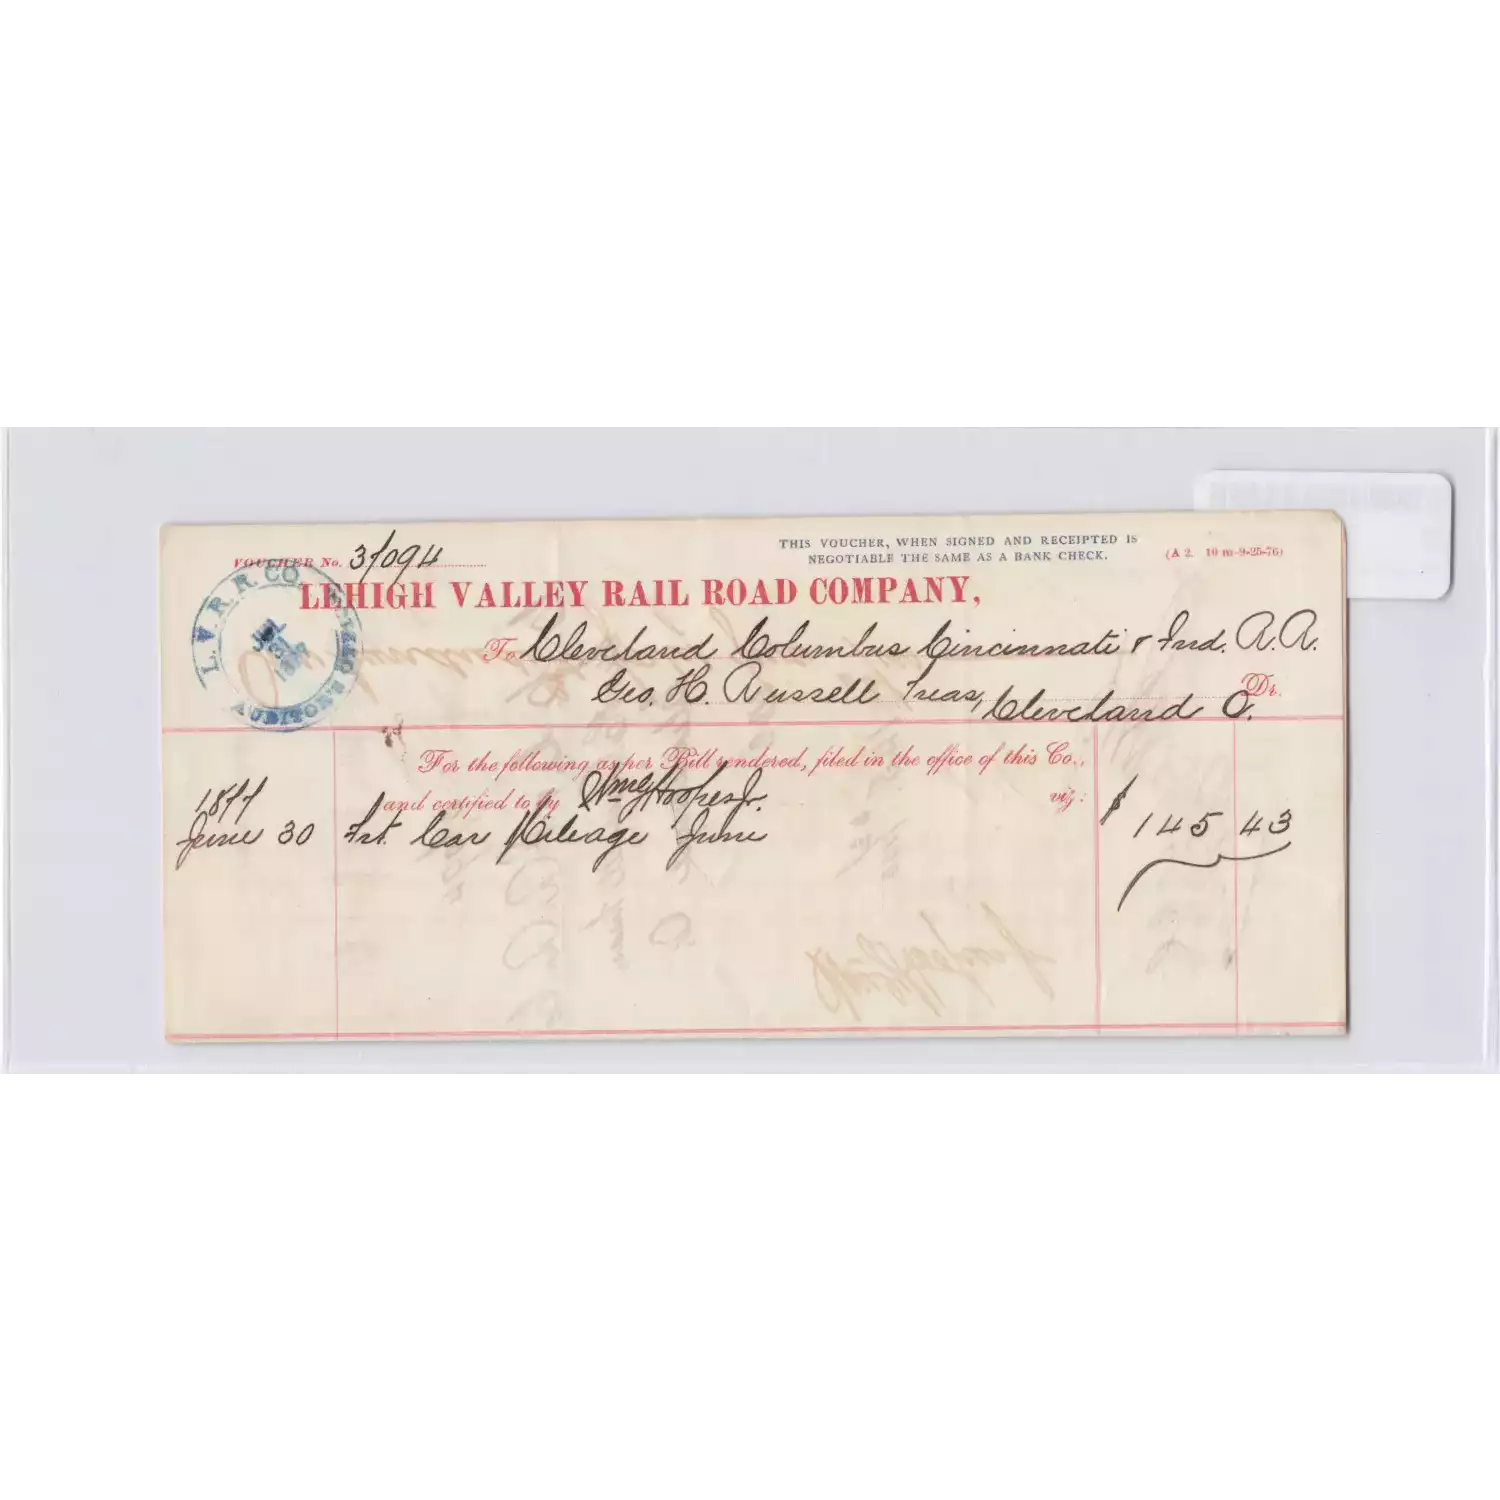 VOUCHER No. 31094
THIS VOUCHER, WHEN SIGNED AND RECEIPTED IS
NEGOTIABLE THE SAME AS A BANK CHECK.
(A 2. 10 m-9-25-76)
L.V.R.R.CO.
AUDITOR
JUL
31
LEHIGH VALLEY RAIL ROAD COMPANY,
To Cleveland Columbus Cincinnati & Ind. R.R.
Geo. H. Russell Treas, Cleveland O. Dr.
For the following as per Bill rendered, filed in the office of this Co.,
1877 and certified to by Hoopes Jr. viz: $
June 30 Frt. Car Mileage June 145 43